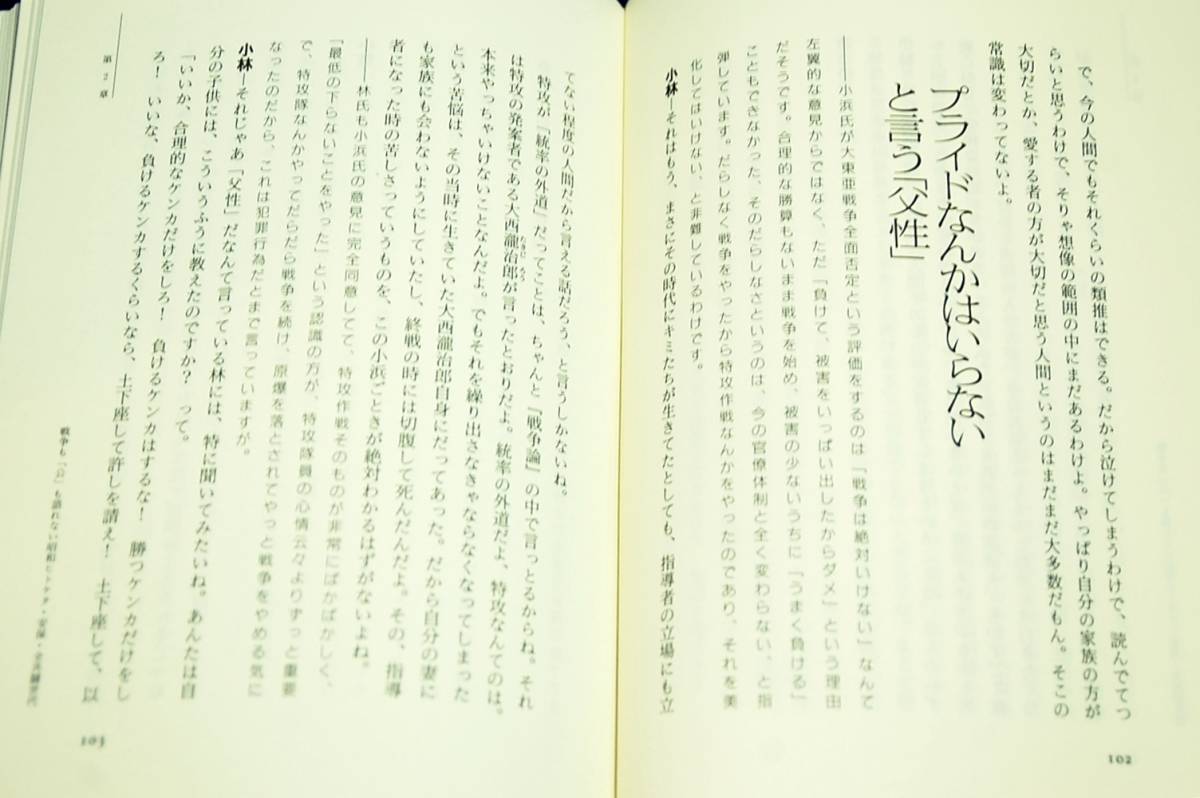 で、今の人間でもそれくらいの類推はできる。だから泣けてしまうわけで、読んでてつ
らいと思うわけで、そりゃ想像の範囲の中にまだあるわけよ。やっぱり自分の家族の方が
大切だとか、愛する者の方が大切だと思う人間というのはまだまだ大多数だもん。そこの
常識は変わってないよ。
プライドなんかはいらない
と言う「父性」
――小浜氏が大東亜戦争全面否定という評価をするのは「戦争は絶対いけない」なんて
左翼的な意見からではなく、ただ「負けて、被害をいっぱい出したからダメ」という理由
だそうです。合理的な勝算もないまま戦争を始め、被害の少ないうちに「うまく負ける」
こともできなかった、そのだらしなさというのは、今の官僚体制と全く変わらない、と指
弾しています。だらしなく戦争をやったから特攻作戦なんかをやったのであり、それを美
化してはいけない、と非難しているわけです。
小林―それはもう、まさにその時代にキミたちが生きてたとしても、指導者の立場にも立
102
てない程度の人間だから言える話だろう、と言うしかないね。
特攻が「統率の外道」だってことは、ちゃんと『戦争論』の中で言っとるからね。それ
は特攻の発案者である大西瀧治郎が言ったとおりだよ。統率の外道だよ、特攻なんてのは。
本来やっちゃいけないことなんだよ。でもそれを繰り出さなきゃならなくなってしまった
という苦悩は、その当時に生きていた大西瀧治郎自身にだってあった。だから自分の妻に
も家族にも会わないようにしていたし、終戦の時には切腹して死んだんだよ。その、指導
者になった時の苦しさっていうものを、この小浜ごときが絶対わかるはずがないよね。
――林氏も小浜氏の意見に完全同意してて、特攻作戦そのものが非常にばかばかしく、
「最低の下らないことをやった」という認識の方が、特攻隊員の心情云々よりずっと重要
で、特攻隊なんかやってだらだら戦争を続け、原爆を落とされてやっと戦争をやめる気に
なったのだから、これは犯罪行為だとまで言っていますが。
小林―それじゃあ「父性」だなんて言っている林には、特に聞いてみたいね。あんたは自
分の子供には、こういうふうに教えたのですか？　って。
「いいか、合理的なケンカだけをしろ！　負けるケンカはするな！　勝つケンカだけをし
ろ！　いいな、負けるケンカするくらいなら、土下座して許しを請え！　土下座して、以
第2章
戦争も「公」も語れない昭和ヒトケタ・安保・全共闘世代
103